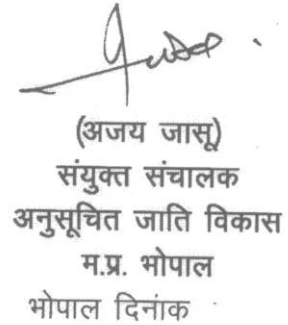 (अजय जासू)
संयुक्त संचालक
अनुसूचित जाति विकास
म.प्र. भोपाल
भोपाल दिनांक